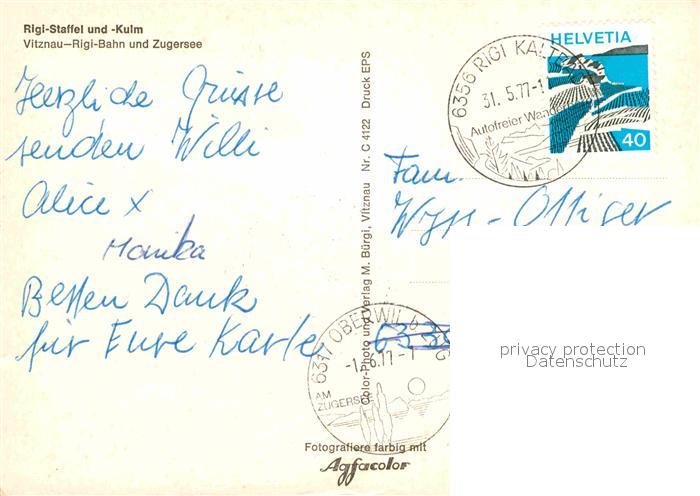 Rigi-Staffel und -Kulm
Vitznau—Rigi-Bahn und Zugersee
Herzliche Grüsse
senden Willi
Alice x
Monika
Besten Dank
für Eure Karte
Color-Photo und Verlag M. Bürgi, Vitznau Nr. C 4122 Druck EPS
HELVETIA
40
6356 RIGI KALTB
31. 5.77-1
Autofreier Wande
Fam.
Wyss - Ottiger
6317 OBERWIL b. ZUG
-1. 6.77-7
AM
ZUGERSEE
privacy protection
Datenschutz
Fotografiere farbig mit
Agfacolor